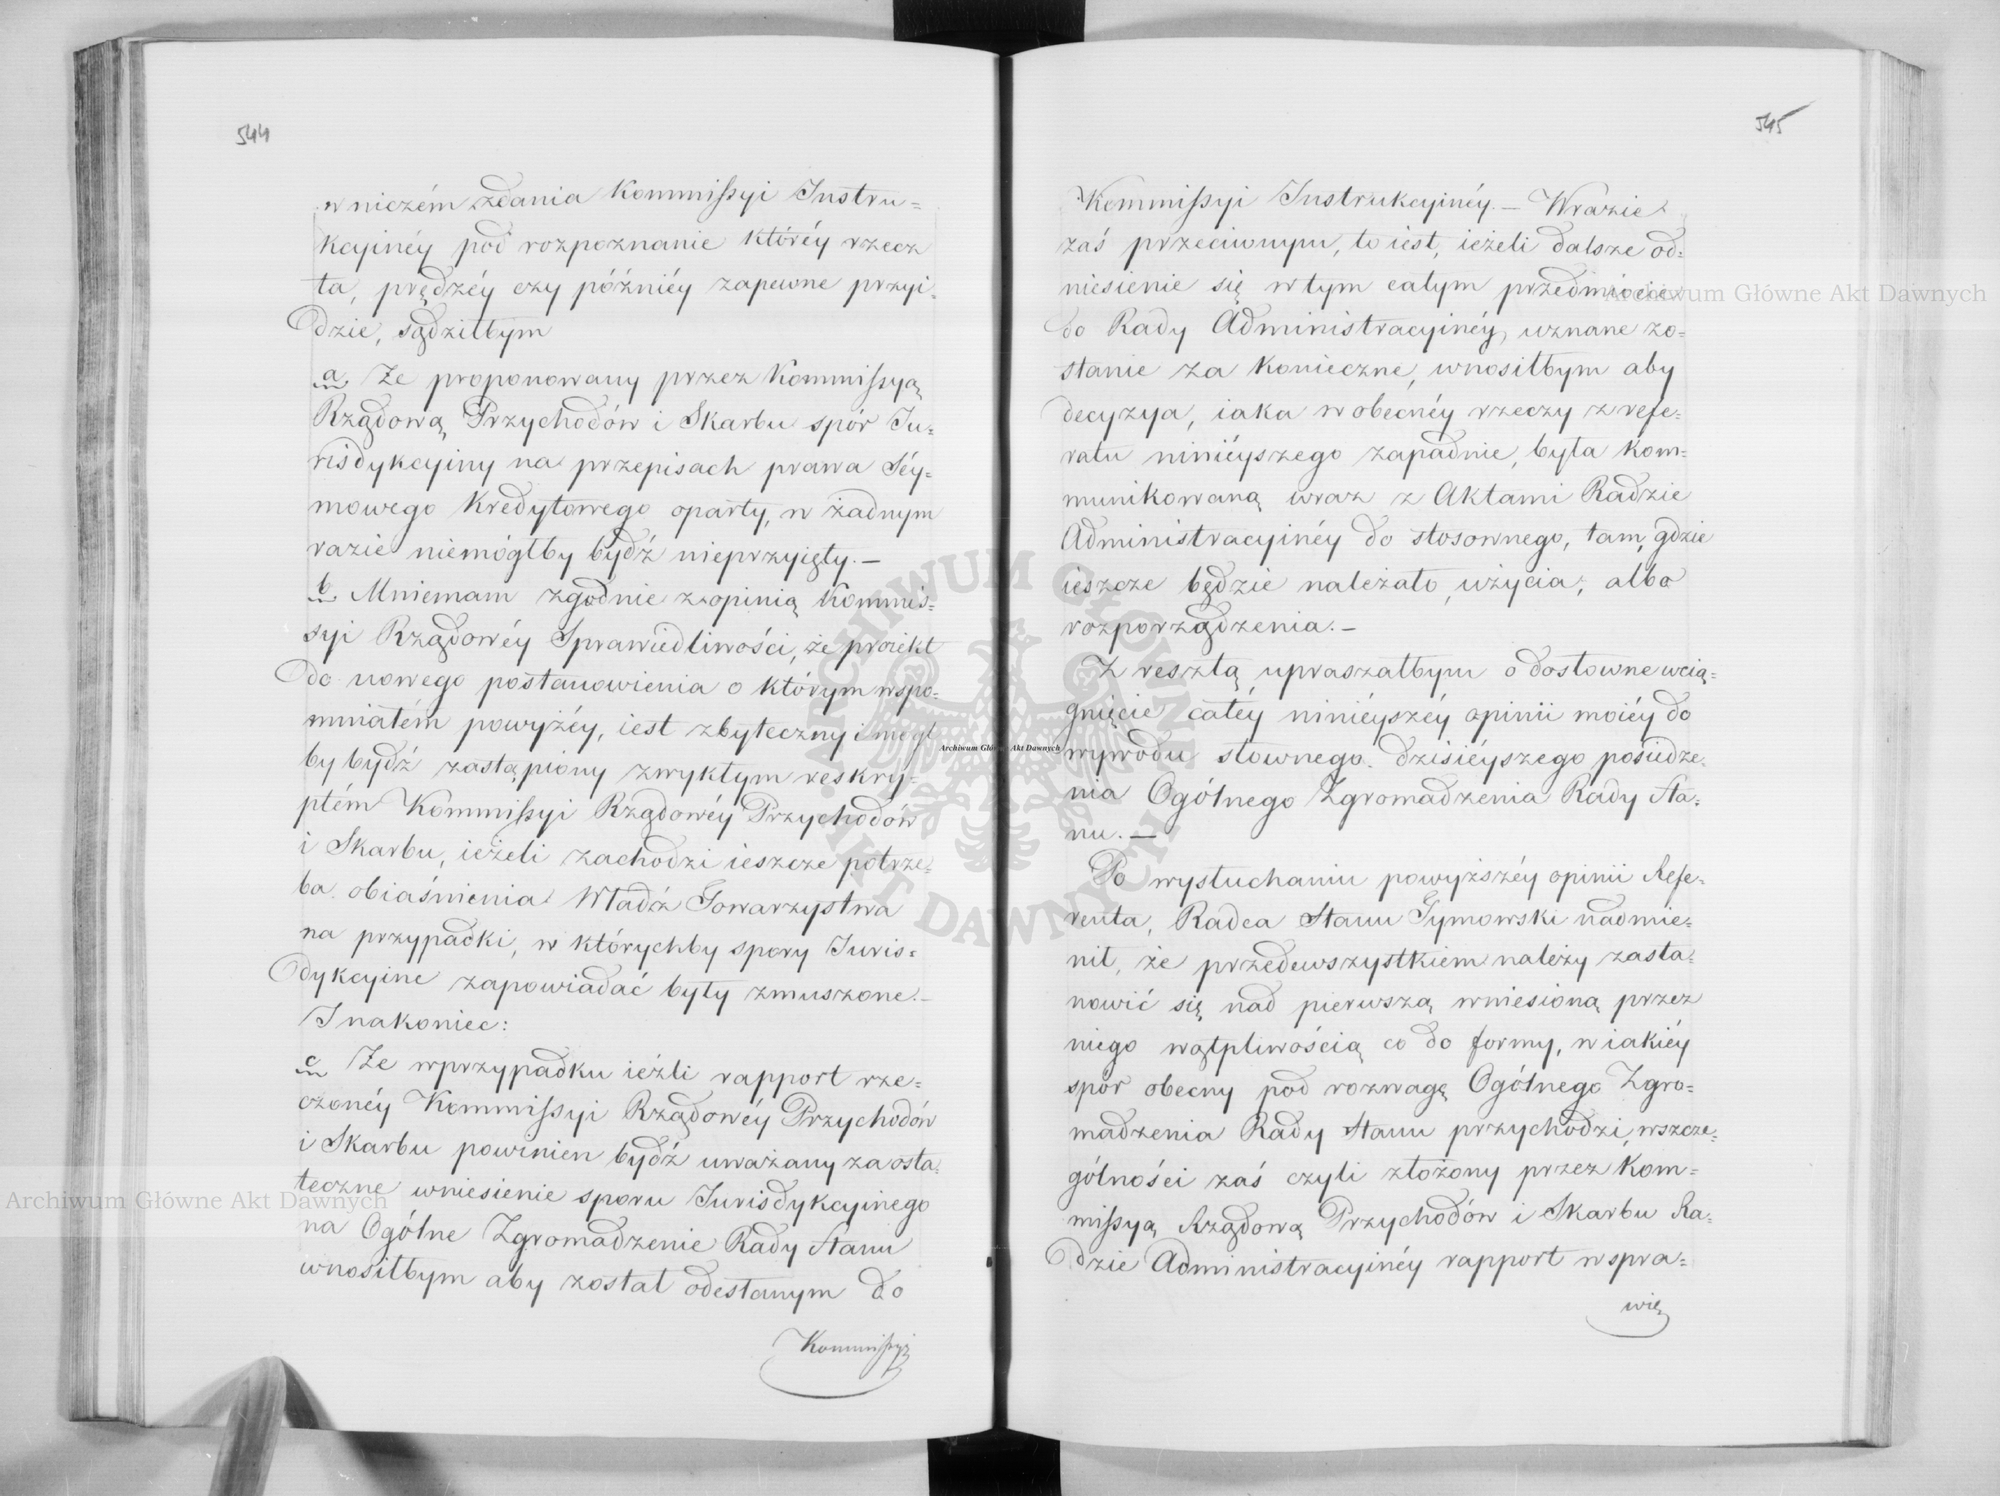 544
w niczém zdania Kommissyi Instru=
kcyinéy pod rozpoznanie któréy rzecz
ta, prędzéy czy późniéy zapewne przyi=
dzie, sądziłbym
a. Że proponowany przez Kommissyą
Rządową Przychodów i Skarbu spór Ju=
risdykcyiny na przepisach prawa Séy=
mowego Kredytowego oparty, w żadnym
razie niemógłby bydź nieprzyięty.—
b. Mniemam zgodnie z opinią Kommis=
syi Rządowéy Sprawiedliwości, że proiekt
do nowego postanowienia o którym wspo=
mniałém powyżéy, iest zbyteczny i mógł
by bydź zastąpiony zwykłym reskry=
ptém Kommissyi Rządowéy Przychodów
i Skarbu, ieżeli zachodzi ieszcze potrze=
ba obiaśnienia Władz Towarzystwa
na przypadki, w którychby spory Juris=
dykcyine zapowiadać były zmuszone.—
Inakoniec:
c. Że wprzypadku ieżli rapport rze=
czonéy Kommissyi Rządowéy Przychodów
i Skarbu powinien bydź uważany za osta=
teczne wniesienie sporu Jurisdykcyinego
na Ogólne Zgromadzenie Rady Stanu
wnosiłbym aby został odesłanym do
Kommissyi
545
Kommissyi Instrukcyinéy.— Wrazie
zaś przeciwnym, to iest, ieżeli dalsze od=
niesienie się w tym całym przedmiocie
do Rady Administracyinéy, uznane zo=
stanie za konieczne, wnosiłbym aby
decyzya, iaka w obecnéy rzeczy z refe=
ratu ninieyszego zapadnie, była kom=
munikowaną wraz z Aktami Radzie
Administracyinéy do stosownego, tam, gdzie
ieszcze będzie należało, użycia, albo
rozporządzenia.—
Z resztą upraszałbym o dosłowne wcią=
gnięcie całéy ninieyszéy opinii moiéy do
wywodu słownego dzisieyszego posiedze=
nia Ogólnego Zgromadzenia Rady Sta=
nu.—
Po wysłuchaniu powyższéy opinii Refe=
renta, Radca Stanu Tymowski nadmie=
nił, że przedewszystkiem należy zasta=
nowić się nad pierwszą wniesioną przez
niego wątpliwością co do formy, w iakiéy
spór obecny pod rozwagę Ogólnego Zgro=
madzenia Rady Stanu przychodzi, wszcze=
gólności zaś czyli złożony przez Kom=
missyą Rządową Przychodów i Skarbu Ra=
dzie Administracyinéy rapport w spra=
wie
Archiwum Główne Akt Dawnych
Archiwum Główne Akt Dawnych
Archiwum Główne Akt Dawnych
ARCHIWUM GŁÓWNE AKT DAWNYCH